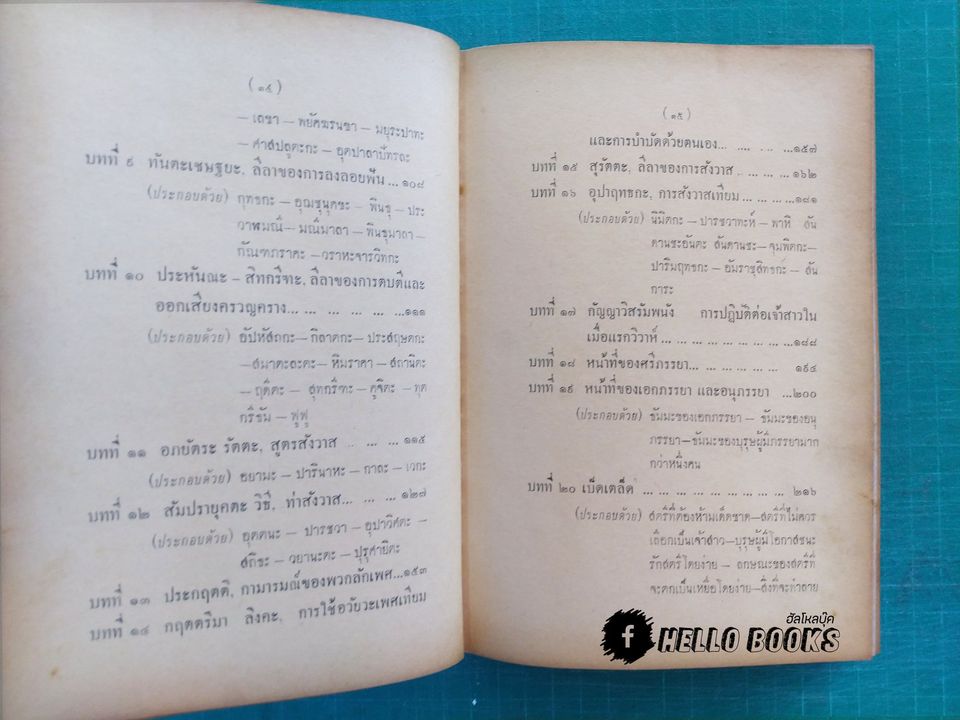 (๑๔)
— เลขา — พยัคฆรนขา — มยุระปาทะ
— ศาสปลุตะกะ — อุตปาลาปัทรละ
บทที่ ๙ ทันตะเชษฐยะ, ลีลาของการลงลอยฟัน ... ๑๐๘
(ประกอบด้วย) กุทธกะ — อุฌชุนุตชะ — พินธุ — ประ
วาฬมณี — มณีมาลา — พินธุมาลา —
กัณฑภราคะ — วราหะจารวิทกะ
บทที่ ๑๐ ประหันณะ – สิทกรีฑะ, ลีลาของการตบตีและ
ออกเสียงครวญคราง... ... ... ... ... ...๑๑๑
(ประกอบด้วย) อัปหัสถกะ — กิลาคกะ — ประสฤษตกะ
— สมาตะละตะ — หิมราคา — สถานิตะ
— ฤดิตะ — สุทกริฑะ — คุจิตะ — ทุต
กริธัม — ฟูฟู
บทที่ ๑๑ อภยัตระ รัตตะ, สูตรสังวาส ... ... ...๑๑๕
(ประกอบด้วย) อยามะ — ปารินาหะ — กาละ — เวกะ
บทที่ ๑๒ สัมปรายุคตะ วิธี, ท่าสังวาส... ... ... ๑๒๗
(ประกอบด้วย) อุตตนะ — ปารชวา — อุปาวิศตะ —
สถิชะ — วยานะตะ — ปุรุศายิตะ
บทที่ ๑๓ ประกฤตติ, กามารมณ์ของพวกลักเพศ...๑๕๓
บทที่ ๑๔ กฤตตริมา ลิงคะ, การใช้อวัยวะเพศเทียม
(๑๕)
และการบำบัดด้วยตนเอง... .... ... ...๑๕๗
บทที่ ๑๕ สุรัตตะ, ลีลาของการสังวาส ... ... ... ...๑๖๒
บทที่ ๑๖ อุปาฤทธกะ, การสังวาสเทียม ... ... ... ...๑๘๑
(ประกอบด้วย) นิมิตกะ — ปารชวาทะห์ — พาหิ สัน
ดานชะอันตะ สันดานชะ — จุมพิตกะ—
ปาริมฤทธกะ — อัมราชุสิทธกะ — สัน
การะ
บทที่ ๑๗ กัญญาวิสรัมพนัง การปฏิบัติต่อเจ้าสาวใน
เมื่อแรกวิวาห์ ... ... ... ... ... ... ... ... ...๑๘๘
บทที่ ๑๘ หน้าที่ของศรีภรรยา... ... ... ... ... ... ๑๙๔
บทที่ ๑๙ หน้าที่ของเอกภรรยา และอนุภรรยา ...๒๐๐
(ประกอบด้วย) ธัมมะของเอกภรรยา — ธัมมะของอนุ
ภรรยา—ธัมมะของบุรุษผู้มีภรรยามาก
กว่าหนึ่งคน
บทที่ ๒๐ เบ็ดเตล็ด ... ... ... ... ... ... ... ... ... ๒๑๖
(ประกอบด้วย) สตรีที่ต้องห้ามเด็ดขาด—สตรีที่ไม่ควร
เลือกเป็นเจ้าสาว—บุรุษผู้มีโอกาสชนะ
รักสตรีโดยง่าย — ลักษณะของสตรีที่
จะตกเป็นเหยื่อโดยง่าย—สิ่งที่จะทำลาย
ฮัลโหลบุ๊ค
f HELLO BOOKS